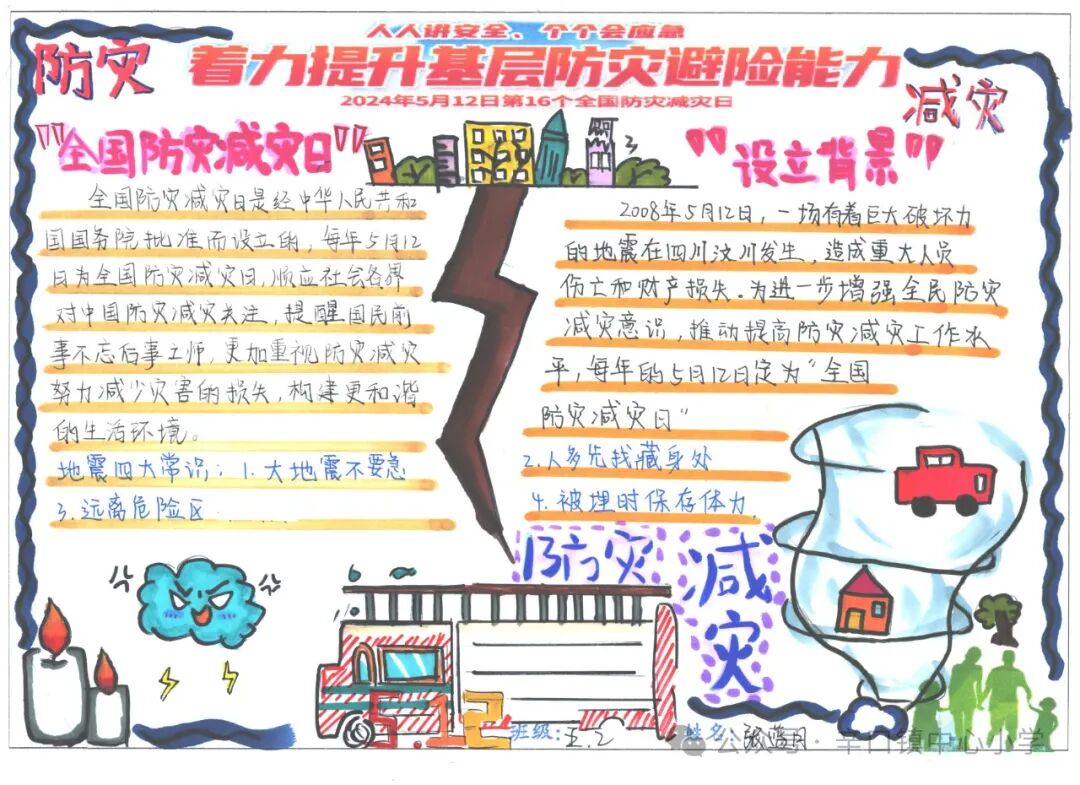 人人讲安全、个个会应急
着力提升基层防灾避险能力
2024年5月12日第16个全国防灾减灾日
防灾
减灾
"全国防灾减灾日"
全国防灾减灾日是经中华人民共和
国国务院批准而设立的，每年5月12
日为全国防灾减灾日，顺应社会各界
对中国防灾减灾关注，提醒国民前
事不忘后事之师，更加重视防灾减灾
努力减少灾害的损失，构建更和谐
的生活环境。
地震四大常识：1.大地震不要急
3.远离危险区
"设立背景"
2008年5月12日，一场有着巨大破坏力
的地震在四川汶川发生，造成重大人员
伤亡和财产损失.为进一步增强全民防灾
减灾意识，推动提高防灾减灾工作水
平，每年的5月12日定为"全国
防灾减灾日"
2.人多先找藏身处
4.被埋时保存体力.
防灾
减灾
5.12
班级:五.2
姓名:
公众号·辛口镇中心小学